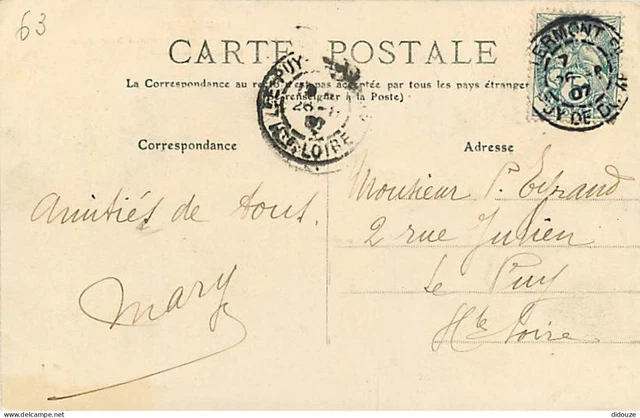 63
CARTE POSTALE
La Correspondance au recto n'est pas acceptée par tous les pays étrangers
(se renseigner à la Poste)
LE PUY
Hte LOIRE
CLERMONT-FD
PUY DE DOME
07
Correspondance
Adresse
Amitiés de tous.
Mary
Monsieur P.
2 rue Julien
Le Puy
Hte Loire
Delcampe.net
didouze